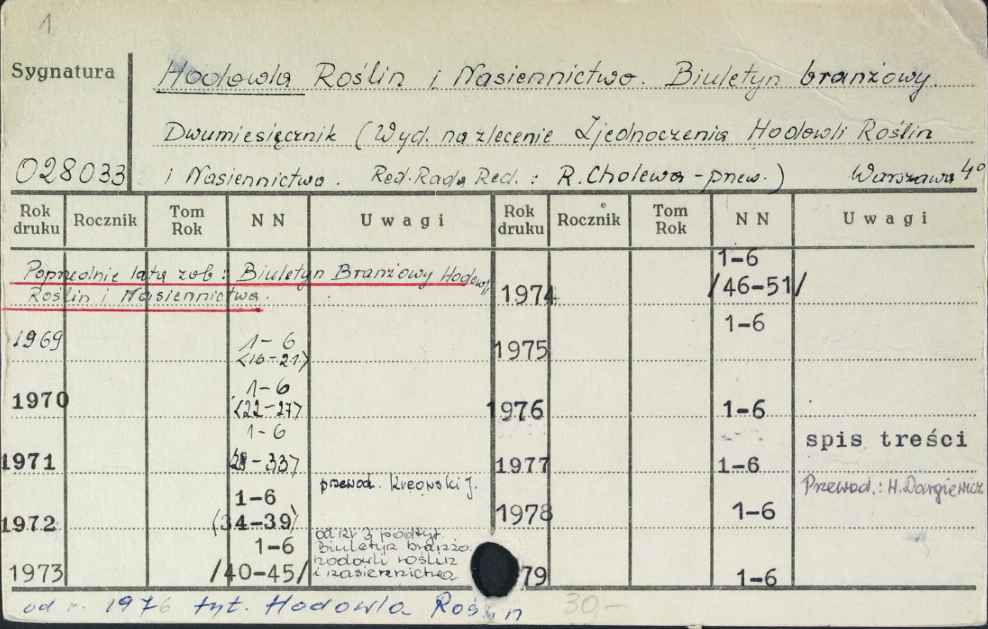 1
Sygnatura
Hodowla Roślin i Nasiennictwo. Biuletyn branżowy.
Dwumiesięcznik (Wyd. na zlecenie Zjednoczenia Hodowli Roślin
028033 i Nasiennictwo. Red. Rada Red.: R. Cholewa - przew.) Warszawa 4°
Rok druku Rocznik Tom Rok NN Uwagi Rok druku Rocznik Tom Rok NN Uwagi
Poprzednie lata zob: Biuletyn Branżowy Hodowli
Roślin i Nasiennictwa.
1969 1-6 (16-21)
1970 1-6 (22-27)
1971 1-6 (28-33)
przewod. Kreowski J.
1972 1-6 (34-39)
1973 1-6 /40-45/
od nr 3 podtyt.
Biuletyn branżo.
hodowli roślin
i nasiennictwa
1974 1-6 /46-51/
1975 1-6
1976 1-6
spis treści
1977 1-6
Przewod.: H. Dargiewicz
1978 1-6
79 1-6
od r. 1976 tyt. Hodowla Roślin 30-